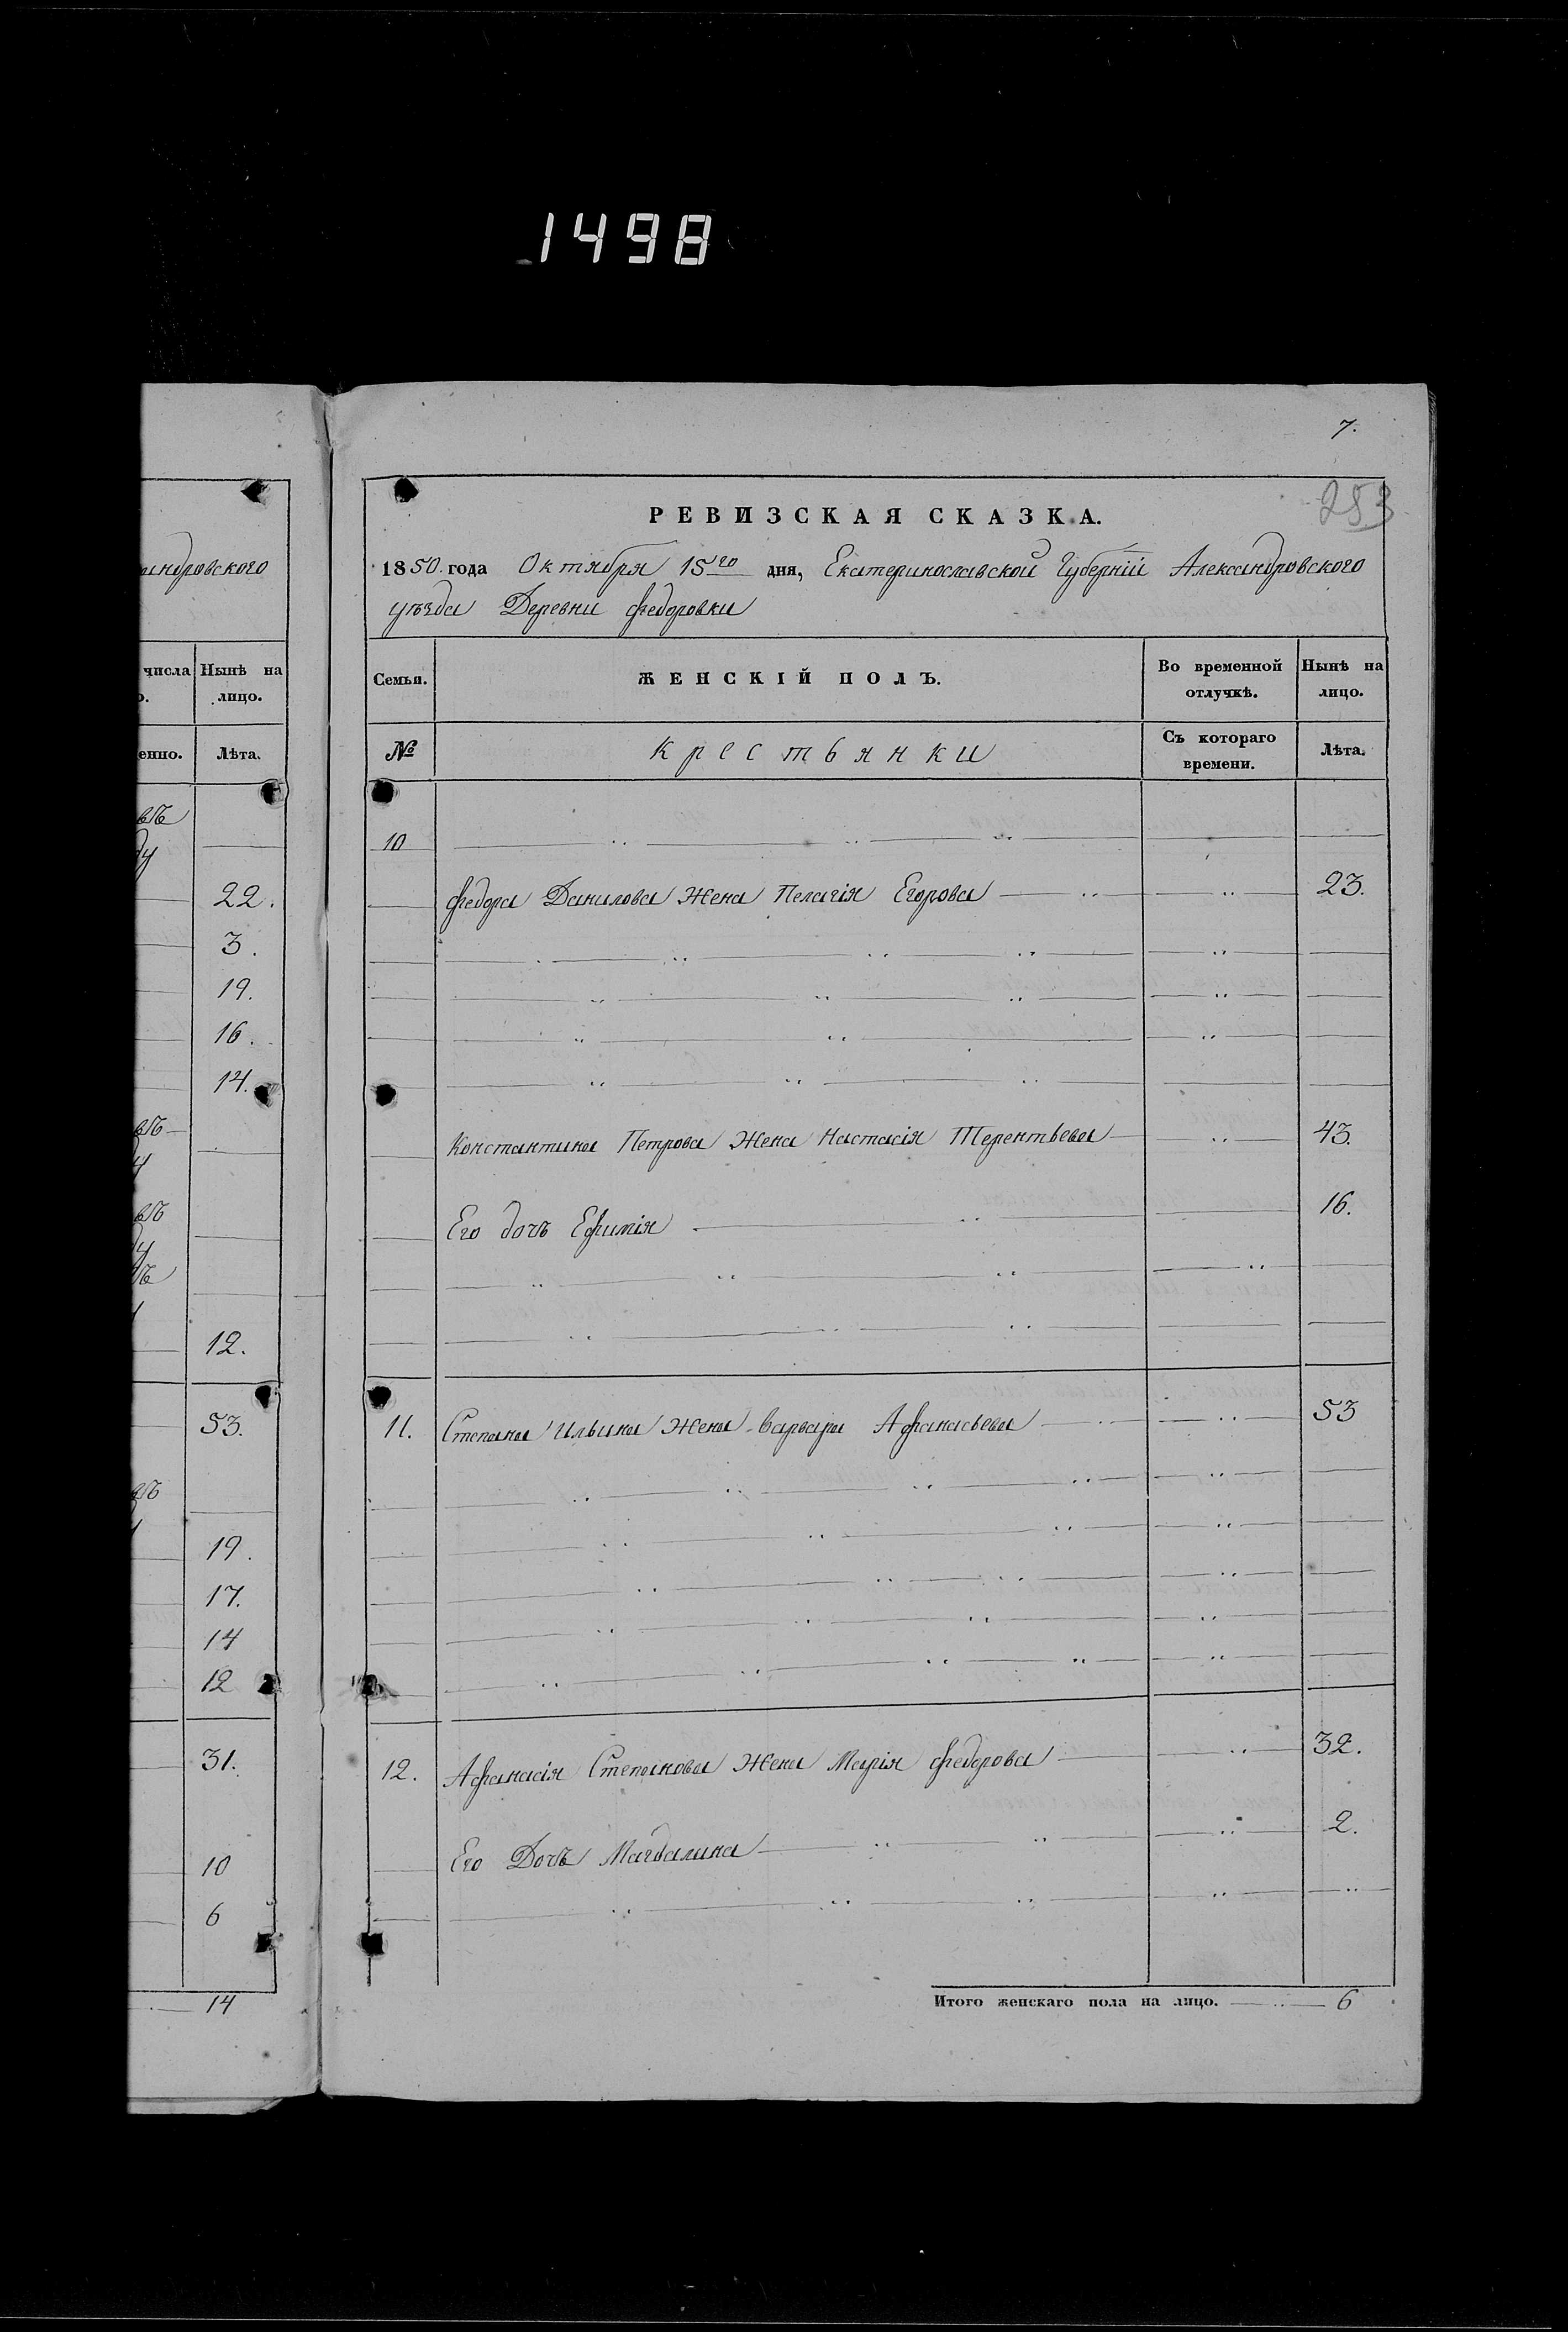 1498
андровского
числа Нынѣ на
о. лицо.
енно. Лѣта.
въ
ду
22.
3.
19.
16.
14.
въ
у
въ
ду
ъ
12.
53.
въ
19.
17.
14
12
31.
10
6
14
7.
253
РЕВИЗСКАЯ СКАЗКА.
1850. года Октября 15го дня, Екатеринославской Губерніи Александровского
уѣзда Деревни Федоровки
Семьи. ЖЕНСКІЙ ПОЛЪ. Во временной отлучкѣ. Нынѣ на лицо.
№ Крестьянки Съ котораго времени. Лѣта.
10
Федора Данилова Жена Пелагія Егорова 23.
Константина Петрова Жена Настасія Терентьева 43.
Его дочь Ефимія 16.
11. Степана Ильина Жена Варвара Афанасьева 53
12. Афанасія Степанова Жена Марія Федорова 32.
Его Дочь Магдалина 2.
Итого женскаго пола на лицо. 6